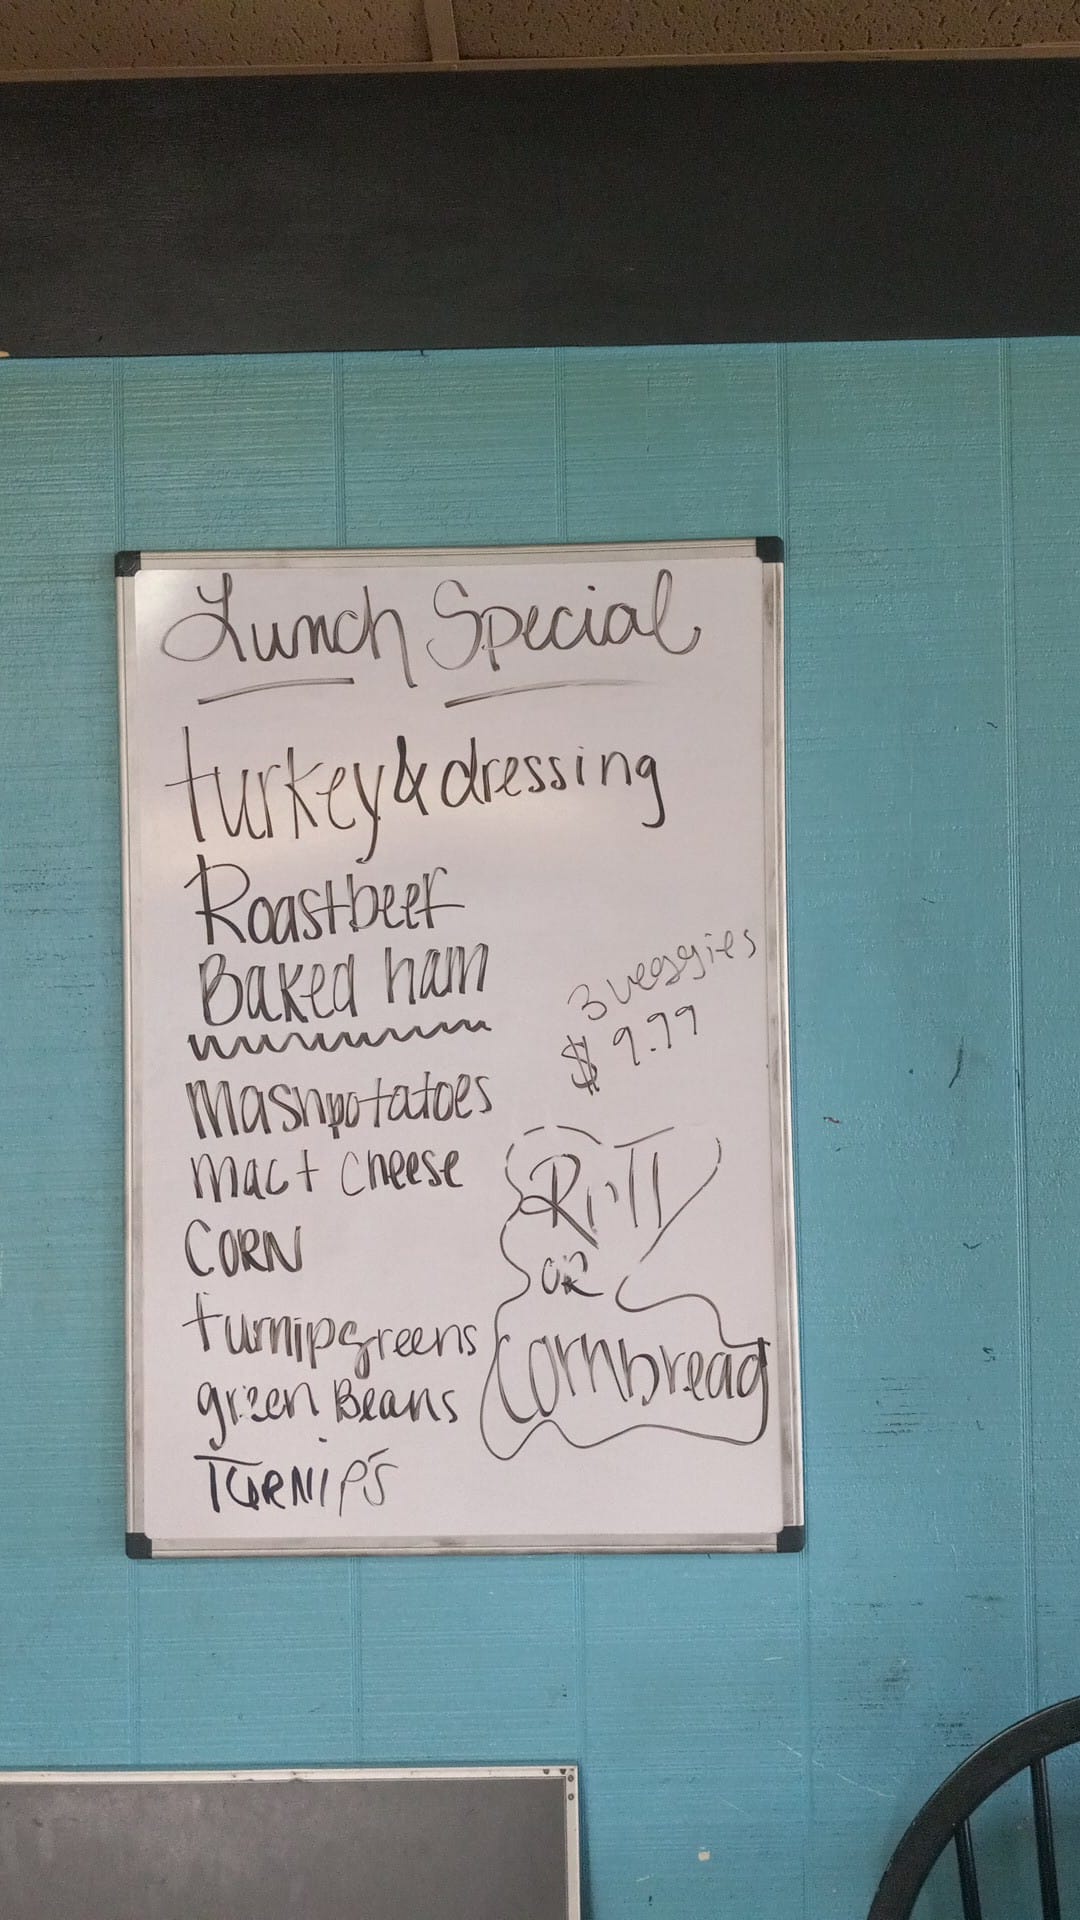 Lunch Special
turkey & dressing
Roastbeef
Baked ham
Mashpotatoes
mac + cheese
CORN
turnipgreens
green Beans
TURNIPS
3 veggies
$ 9.99
Roll
OR
Cornbread